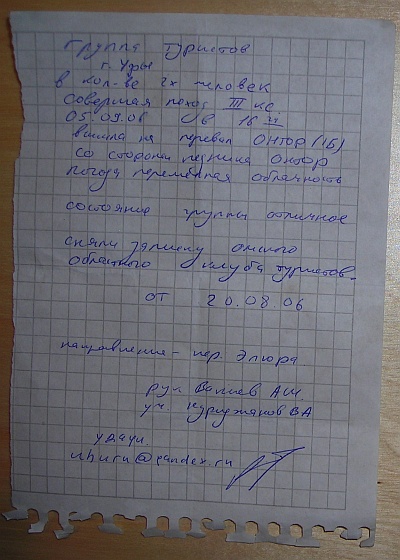 Группа туристов
г. Уфы
в кол-ве 2х человек
совершая поход III кс.
05.09.06 в 16 11
вышла на перевал ОНТОР (1Б)
со стороны ледника Онтор
погода переменная облачность
состояние группы отличное
сняли записку омского
областного клуба туристов.
от 20.08.06
направление - пер. Элюра
рук Валиев А.Ш.
уч. ВА
удачи.
uhuru@yandex.ru